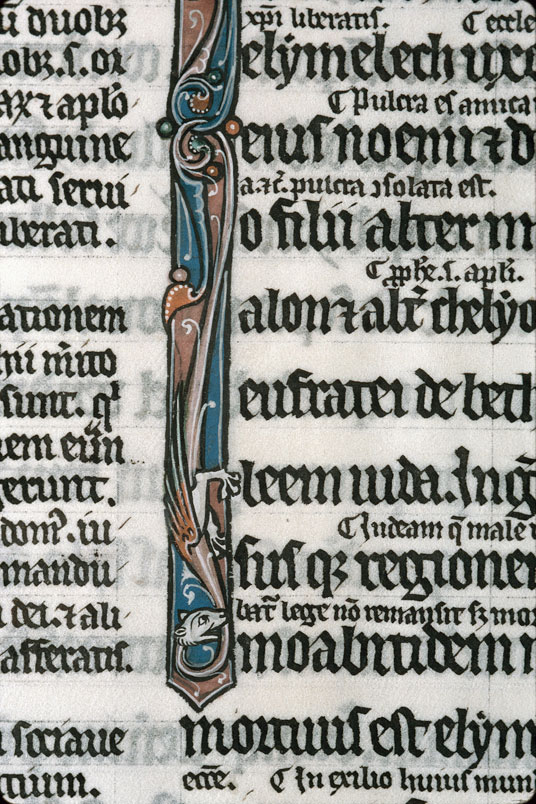 u duobꝫ
obꝫ.s. ox
ax ⁊ aplo
anguine
ati serui
iberati.
ationem
hii m̄ito
sunt. q̄
em eū
gerunt.
dom̄. iu
mandu
dei. ⁊ ali
asseratis.
sociaue
tium.
xp̄i liberatis. ⸿ eccle
elymelech uxo
⸿ Pulcra es amica
eius noemi ⁊ d
a. ⁊c̄. pulcra ⁊ solata est.
o filii alter m
⸿ pph̄e. s. apli.
alon ⁊ alt̄ chelyo
eufratei de beth
leem iuda. Inḡ
⸿ Iudeam q̄ male
sus qꝫ regionem
bat̄ lege nō remansit sꝫ mor
moabitidem
mortuus est elym
ecc̄e. ⸿ In exilio huius mun